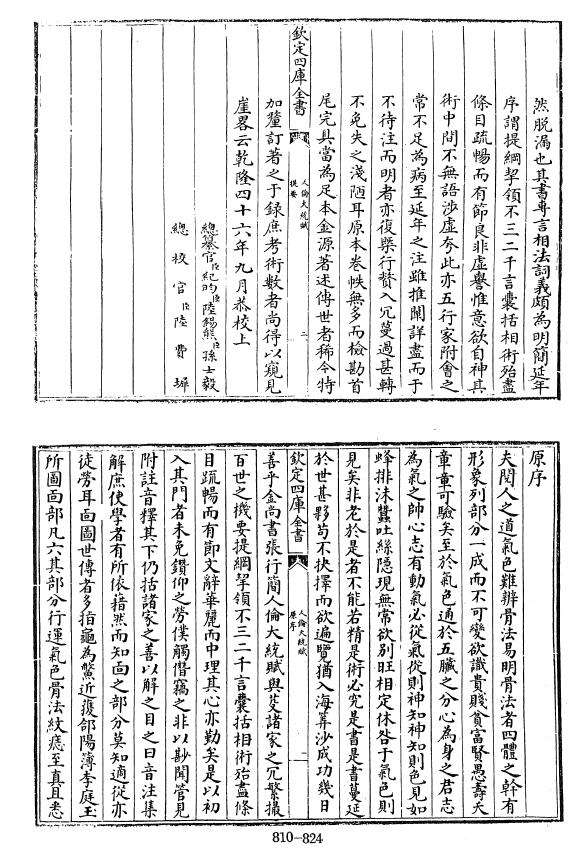 然脱漏也其書專言相法詞義頗為明簡延年
序謂提綱挈領不三二千言囊括相術殆盡
條目疏暢而有節良非虛譽惟意欲自神其
術中間不無語涉虛夸此亦五行家附會之
常不足為病至延年之注雖推闡詳盡而于
不待注而明者亦復槩行贅入冗蔓過甚轉
不免失之淺陋耳原本卷帙無多而檢勘首
欽定四庫全書
人倫大統賦
提要
二
尾完具當為足本金源著述傳世者稀今特
加釐訂著之于錄庶考術數者尚得以窺見
崖畧云乾隆四十六年九月恭校上
總纂官臣紀昀臣陸錫熊臣孫士毅
總校官臣陸費墀
原序
夫閱人之道氣色難辨骨法易明骨法者四體之幹有
形象列部分一成而不可變欲識貴賤貧富賢愚壽夭
章章可驗矣至於氣色通於五臟之分心為身之君志
為氣之帥心志有動氣必從氣從則神知神知則色見如
蜂排沫蠶吐絲隱現無常欲別旺相定休咎于氣色則
見矣非老於是者不能若精是術必究是書是書蔓延
於世甚夥苟不抉擇而欲遍覽猶入海筭沙成功幾日
欽定四庫全書
人倫大統賦
原序
一
善乎金尚書張行簡人倫大統賦與芟諸家之冗繁撮
百世之機要提綱挈領不三二千言囊括相術殆盡條
目疏暢而有節文辭華麗而中理其心亦勤矣是以初
入其門者未免鑽仰之勞僕觸僭竊之非以尠聞管見
附註音釋其下仍括諸家之善以解之目之曰音注集
解庶使學者有所依藉然而知面之部分莫知適從亦
徒勞耳面圖世傳者多指龜為鱉近獲郃陽簿李庭玉
所圖面部凡六其部分行運氣色骨法紋痣至真且悉
810-824